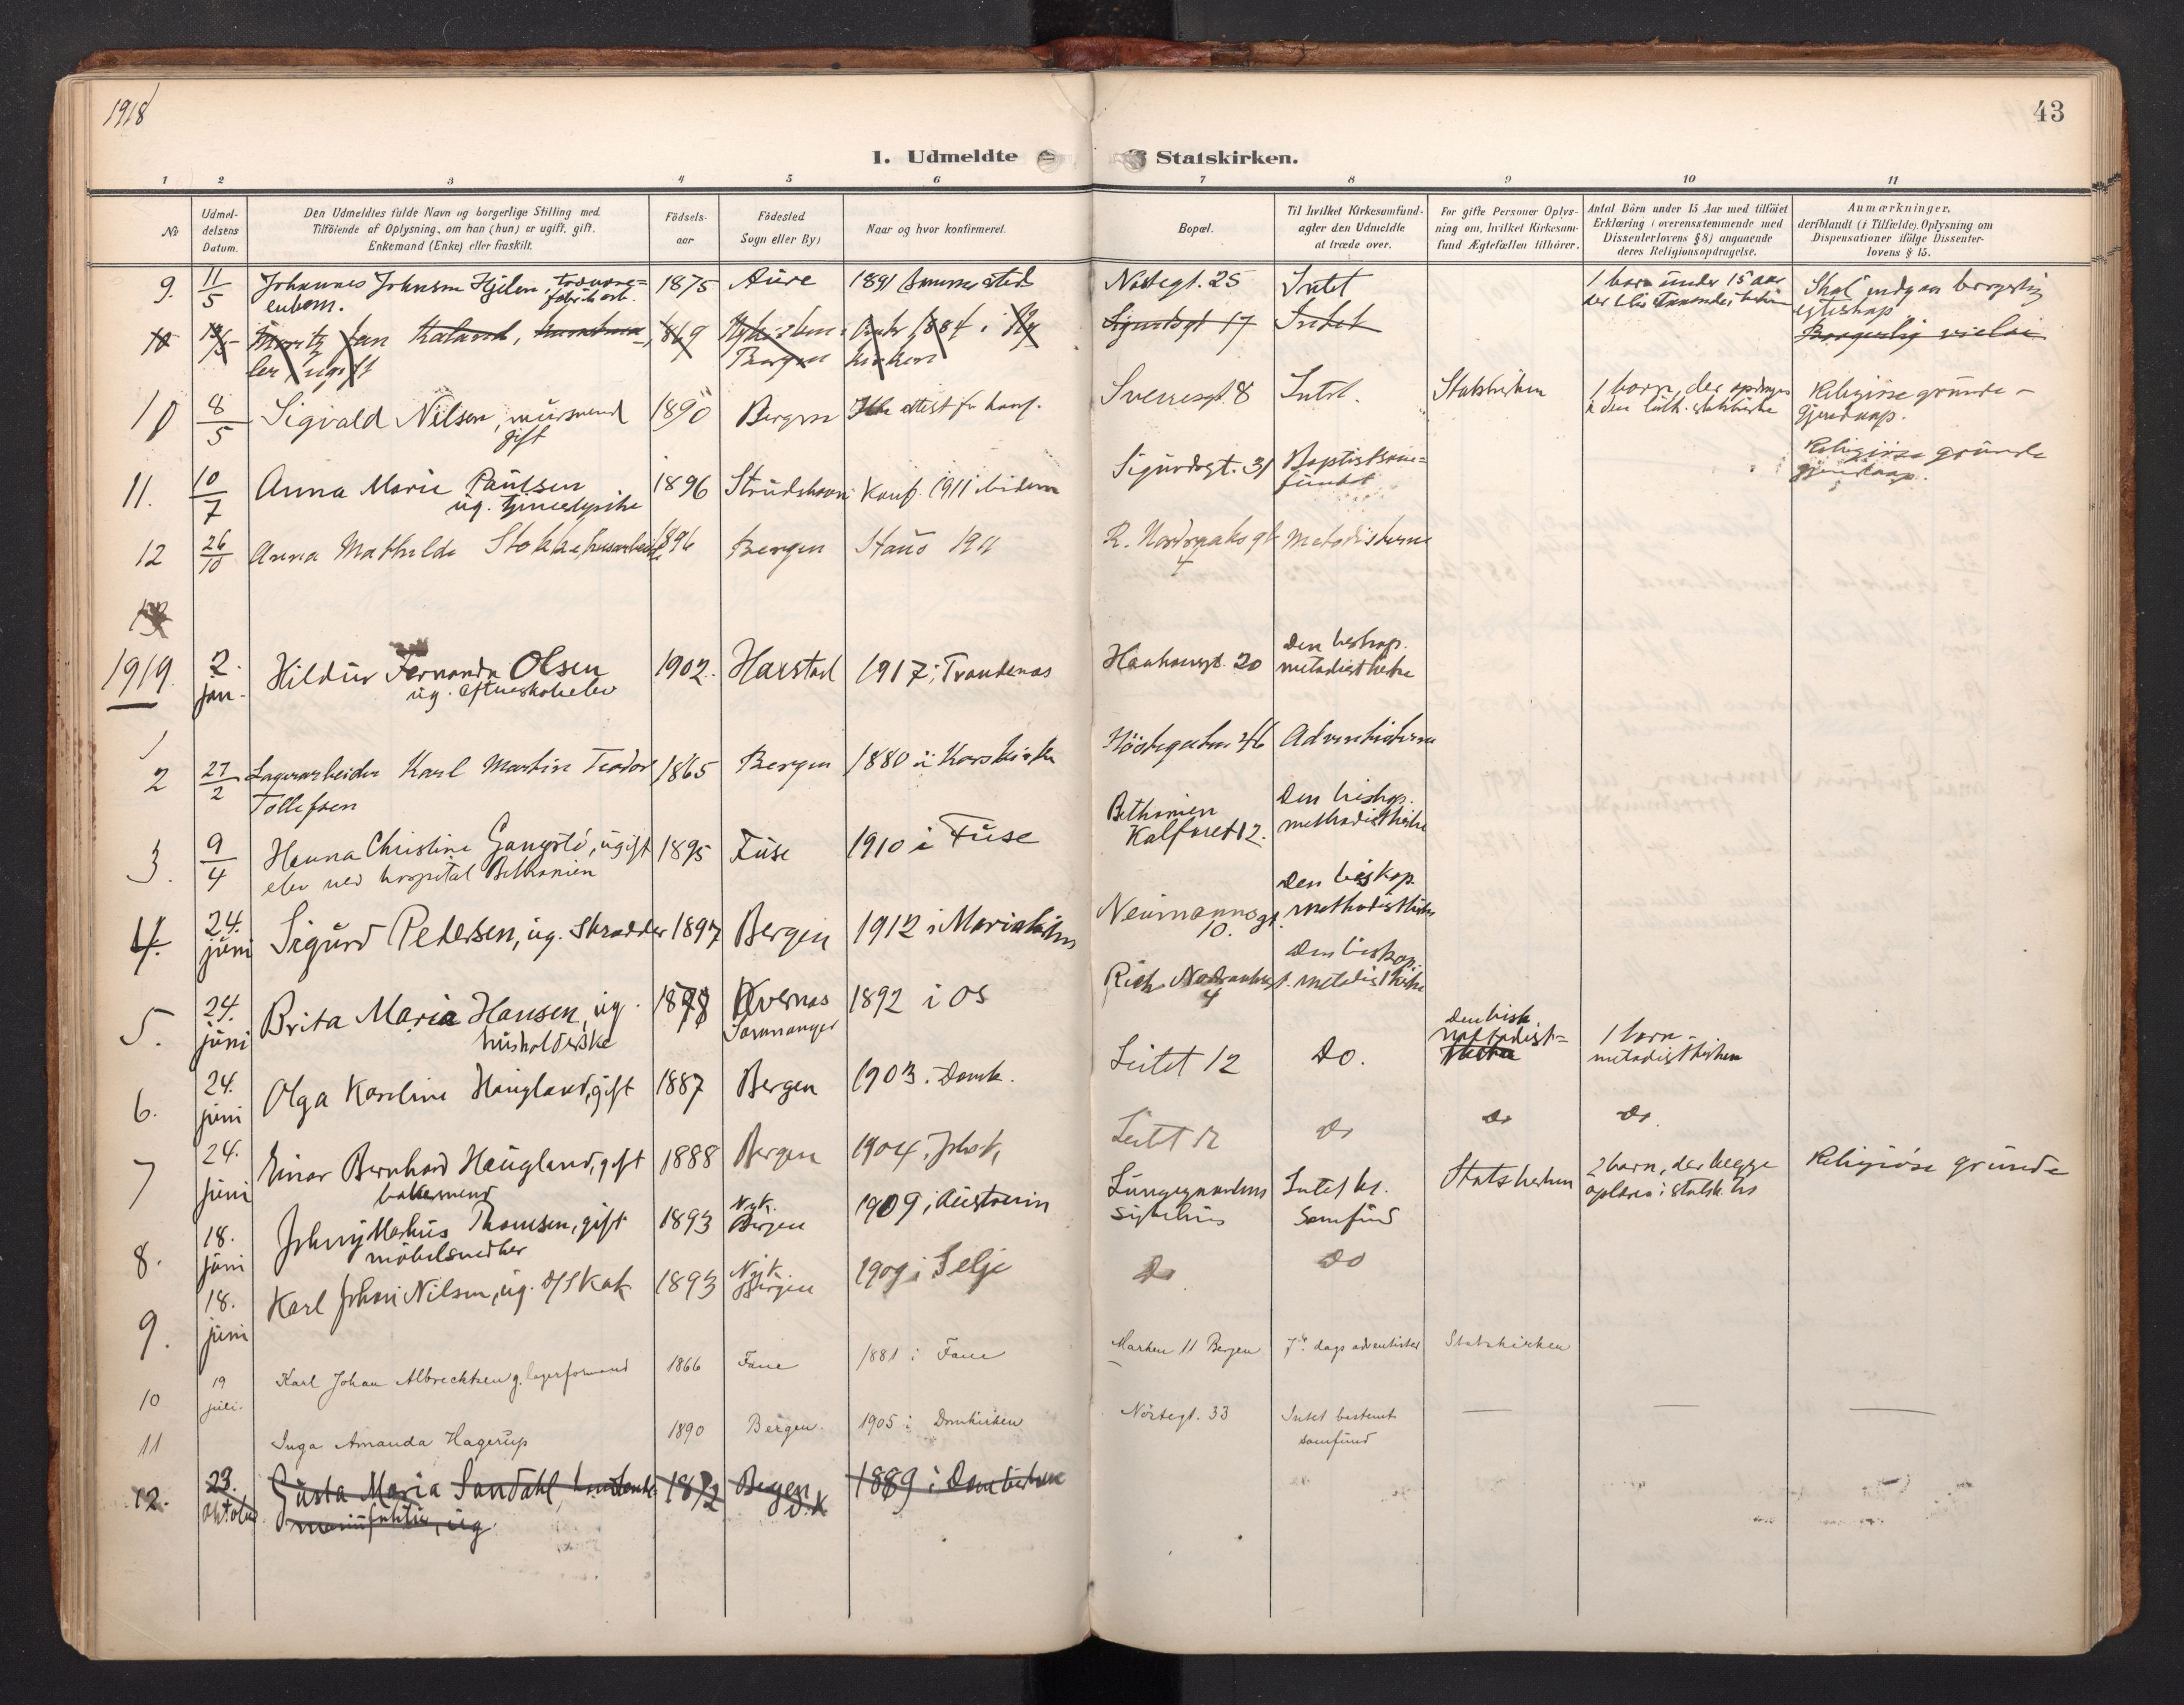 1918
43
1. Udmeldte
Statskirken.
1 2 3 4 5 6 7 8 9 10 11
No
Udmel-
delsens
Datum.
Den Udmeldtes fulde Navn og borgerlige Stilling med
Tilföiende af Oplysning, om han (hun) er ugift, gift,
Enkemand (Enke) eller fraskilt.
Födsels-
aar
Födested
Sogn eller By)
Naar og hvor konfirmeret.
Bopæl.
Til hvilket Kirkesamfund-
agter den Udmeldte
at træde over.
For gifte Personer Oplys-
ning om, hvilket Kirkesam-
fund Ægtefællen tilhörer.
Antal Börn under 15 Aar med tilföiet
Erklæring i overensstemmende med
Dissenterlovens § 8) angaaende
deres Religionsopdragelse.
Anmærkninger,
deriblandt (i Tilfælde), Oplysning om
Dispensationer ifölge Dissenter-
lovens § 15.
9. 11/5 Johannes Johnsen Hjelen, 1875 Aure 1891 samme sted Nöstegt. 25 Intet 1 barn under 15 aar
Skal indgaa borgerlig
egteskap
Jan Kaland, 1869 1884 i Sigurdsgt 17 Intet
Bergen kirken Borgerlig vielse
ler, ugift
10 8/5 Sigvald Nilsen, mursvend 1890 Bergen Ikke attest for konf. Sverresgt. 8 Intet. Statskirken 1 barn, der opdrages
gift
i den luth. statskirke
Religiøse grunde -
11. 10/7 Anna Marie Paulsen 1896 Strudshavn Konf. 1911 ibidem Sigurdsgt. 31 Baptistsam=
fundet
Religiøse grunde
ug. tjenestepike
12 26/10 Anna Mathilde Stokke husarbeid 1896 Bergen Staus 1911 R. Nordraaks gt Metodisterne
4
1919. 2. jan. Hildur Fernanda Olsen 1902. Harstad 1917 i Trondenes Haakonsgt. 20 Den biskop.
metodistkirke
ug.
1
2 27/2 Lagerarbeider Karl Martin Teodor 1865 Bergen 1880 i Korskirken Nöstegaten 46 Adventisterne
Tollefsen
3. 9/4 Hanna Christine Gangstö, ugift 1895 Fuse 1910 i Fuse Bethanien
Kalfaret 12.
Den biskop.
methodistkirke
elev ved hospital Bethanien
4. 24. juni Sigurd Petersen, ug. Skrædder 1897 Bergen 1912 i Mariakirken Neumannsgt.
10.
Den biskop.
methodistkirke
5. 24. juni Brita Maria Hansen, ug. 1878 Kvernes 1892 i Os Rich. Nordraaksgt.
4
Den biskop.
metodistkirke
husholderske
6. 24. juni Olga Karoline Haugland, gift 1887 Bergen 1903 i Domk. Leitet 12 Do. Den bisk.
metodist=
1 barn -
metodistkirken
7 24. juni Einar Bernhard Haugland, gift 1888 Bergen 1904 i Joh.k. Leitet 12 Do Do Do.
bakersvend
8. 18. juni Johnny Markus Thomsen, gift 1893 Nyk.
Bergen
1909 i Lungegaardens
sykehus
Intet bs.
samfund
Statskirken 2 barn, der begge
Religiøse grunde
möbelsnedker
9. 18. juni Karl Johan Nilsen, ug. 1893 Nyk.
Bergen
1909 i Selje Do Do
10 19 juli. Karl Johan Albrechtsen g. lagerformand 1866 Fane 1881 i Fane Marken 11 Bergen 7de dags adventister Statskirken
11 Inga Amanda Hagerup 1890 Bergen. 1905 i Domkirken Nöstegt. 33 Intet bestemt
samfund
12. 23. oktober Gusta Maria Sandahl, 1872 Bergen
D.K
1889 i Domkirken
ug.